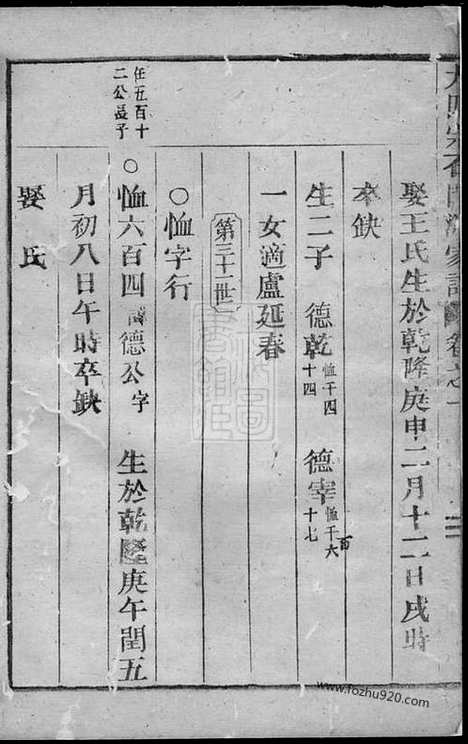 娶王氏生於乾隆庚申二月十二日戌時
卒缺
生二子 德乾 恤千四十四 德宰 恤千六百十七
一女適盧延春
第三十一世
○恤字行
任五百十二公長子
○恤六百四 諱德公字 生於乾隆庚午閏五
月初八日午時卒缺
娶 氏
www.fozhu920.com